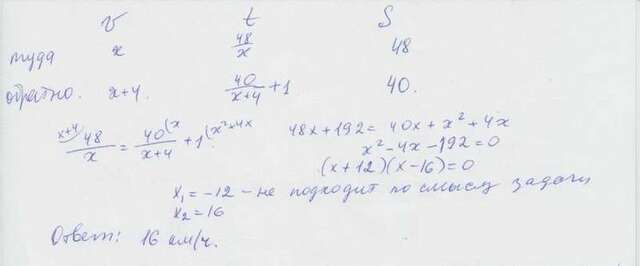 v t S
туда x 48/x 48
обратно. x+4. 40/(x+4) + 1 40.
x+4) 48/x = 40(x/(x+4) + 1(x²+4x
48x+192 = 40x + x² + 4x
x² - 4x - 192 = 0
(x+12)(x-16) = 0
x₁ = -12 - не подходит по смыслу задачи
x₂ = 16
Ответ: 16 км/ч.